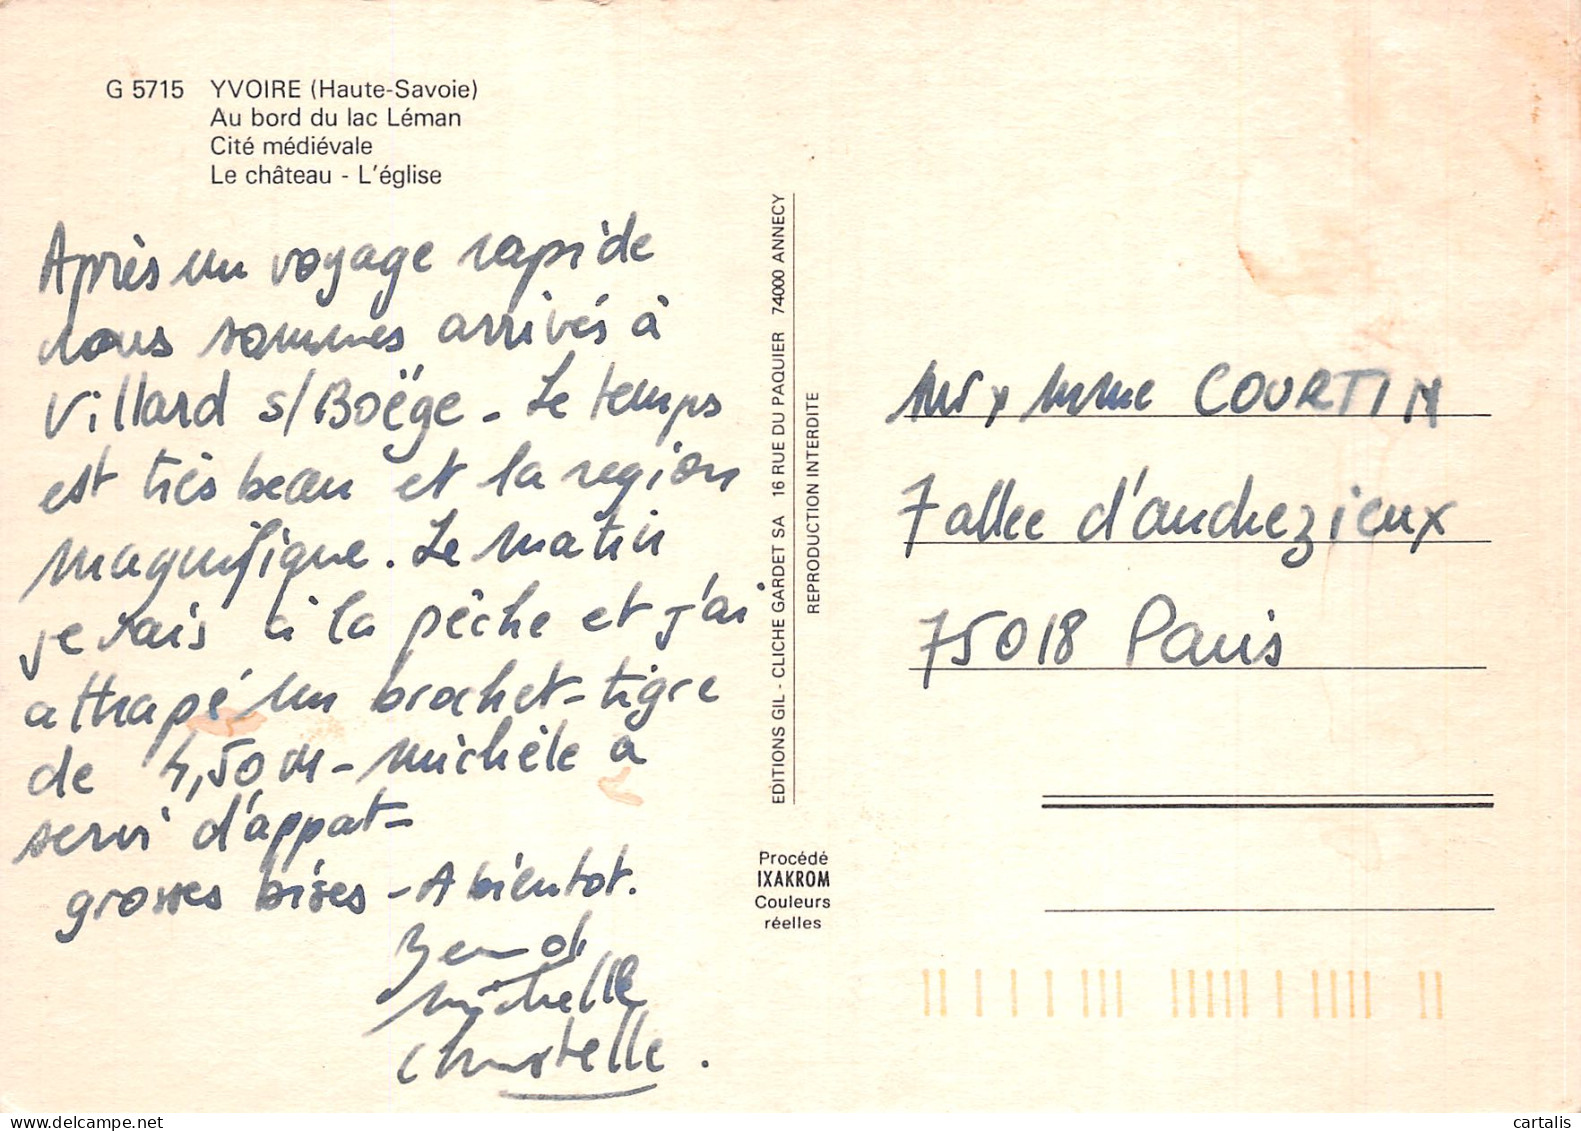 G 5715 YVOIRE (Haute-Savoie)
Au bord du lac Léman
Cité médiévale
Le château - L'église
Après un voyage rapide
nous sommes arrivés à
Villard s/Boëge - Le temps
est très beau et la region
magnifique. Le matin
je vais à la pêche et j'ai
attrapé un brochet-tigre
de 4,50 m - Michèle a
servi d'appat -
grosses bises - A bientot.
Michelle
Christelle.
EDITIONS GIL - CLICHE GARDET SA 16 RUE DU PAQUIER 74000 ANNECY
REPRODUCTION INTERDITE
Procédé
IXAKROM
Couleurs
réelles
Mme COURTIN
7 allee d'andrezieux
75018 Paris
cartalis